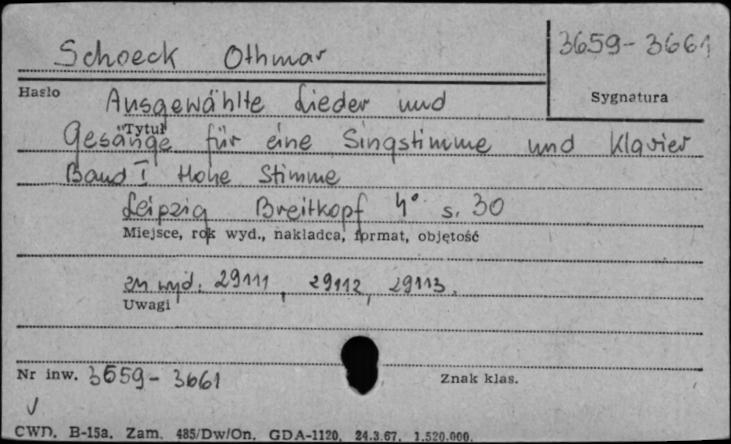 Schoeck Othmar
3659-3661
Hasło
Sygnatura
Ausgewählte Lieder und
Tytuł
Gesänge für eine Singstimme und Klavier
Band I Hohe Stimme
Leipzig Breitkopf 4° s. 30
Miejsce, rok wyd., nakładca, format, objętość
zn wyd. 29111, 29112, 29113.
Uwagi
Nr inw. 3659-3661
Znak klas.
CWD. B-15a. Zam. 485/Dw/On. GDA-1120, 24.3.67. 1.520.000.